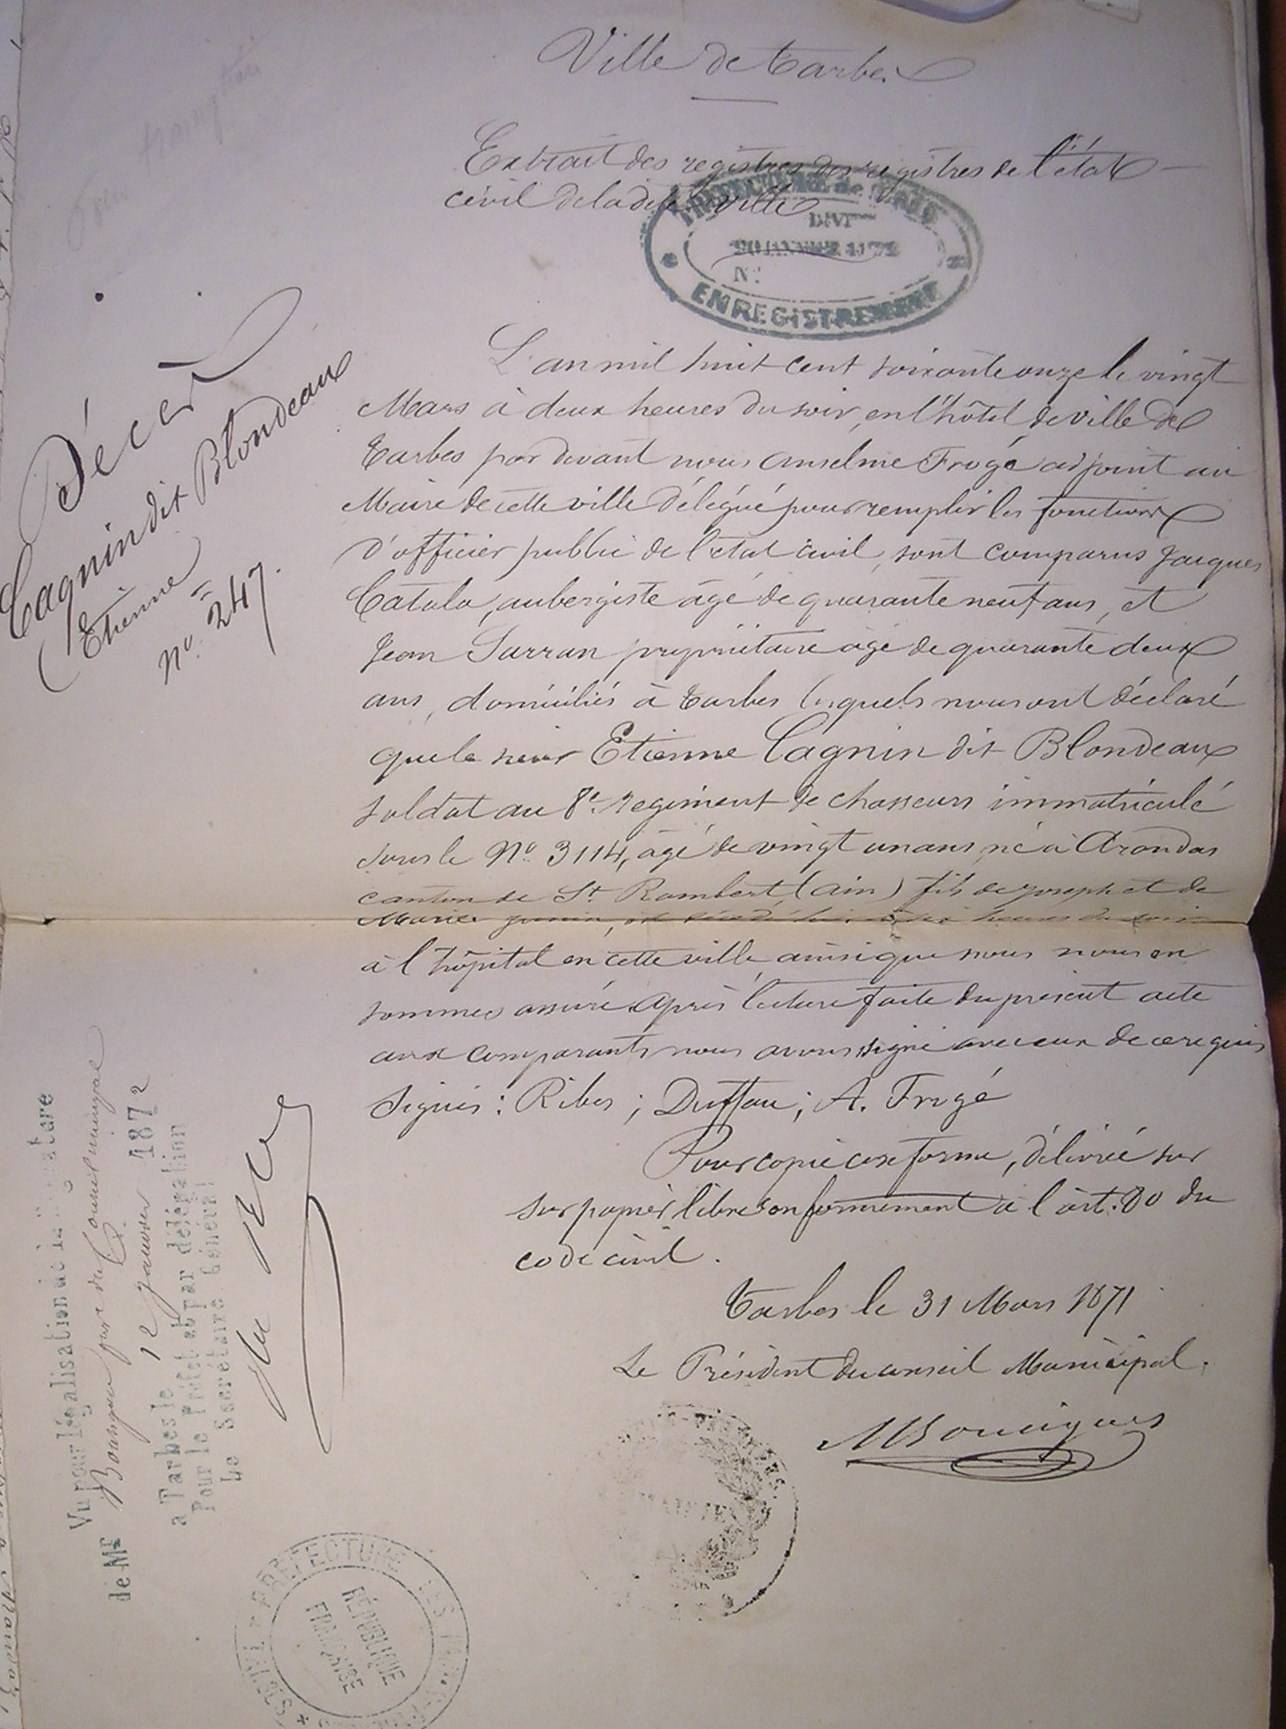 Ville de Tarbes
Extrait des registres des registres de l'état
civil de la dite ville
PREFECTURE de
DIVI
20 JANVIER 1872
N°
ENREGISTREMENT
Décès
Cagnin dit Blondeaux
Etienne
N° 247.
L'an mil huit cent soixante onze le vingt
Mars à deux heures du soir, en l'hôtel de ville de
Tarbes par devant nous Anselme Frogé adjoint au
Maire de cette ville délégué pour remplir les fonctions
d'officier public de l'état civil, sont comparus Jacques
Catala, aubergiste agé de quarante neuf ans, et
Jean Sarran propriétaire agé de quarante deux
ans, domiciliés à Tarbes lesquels nous ont déclaré
que le sieur Etienne Cagnin dit Blondeaux
soldat au 8e Regiment de chasseurs immatriculé
sous le N° 3114, agé de vingt un ans né à Arandas
canton de St Rambert (ain) fils de joseph et de
Marie est décédé hier à heures du soir
à l'hôpital en cette ville, ainsi que nous nous en
sommes assuré Après lecture faite du présent acte
aux comparants nous avons signé avec eux de ce requis
Signés: Ribes; Duffau; A. Frogé
Pour copie conforme, délivrée sur
sur papier libre conformement à l'art. 80 du
code civil.
Tarbes le 31 Mars 1871
Le Président du conseil Municipal.
MBousigues
Vu pour légalisation de la signature
de Mr président du Conseil municipal
a Tarbes le 12 janvier 1872
Pour le Préfet et par délégation
Le Secrétaire Général
PREFECTURE DES
RÉPUBLIQUE
FRANÇAISE
MAIRIE